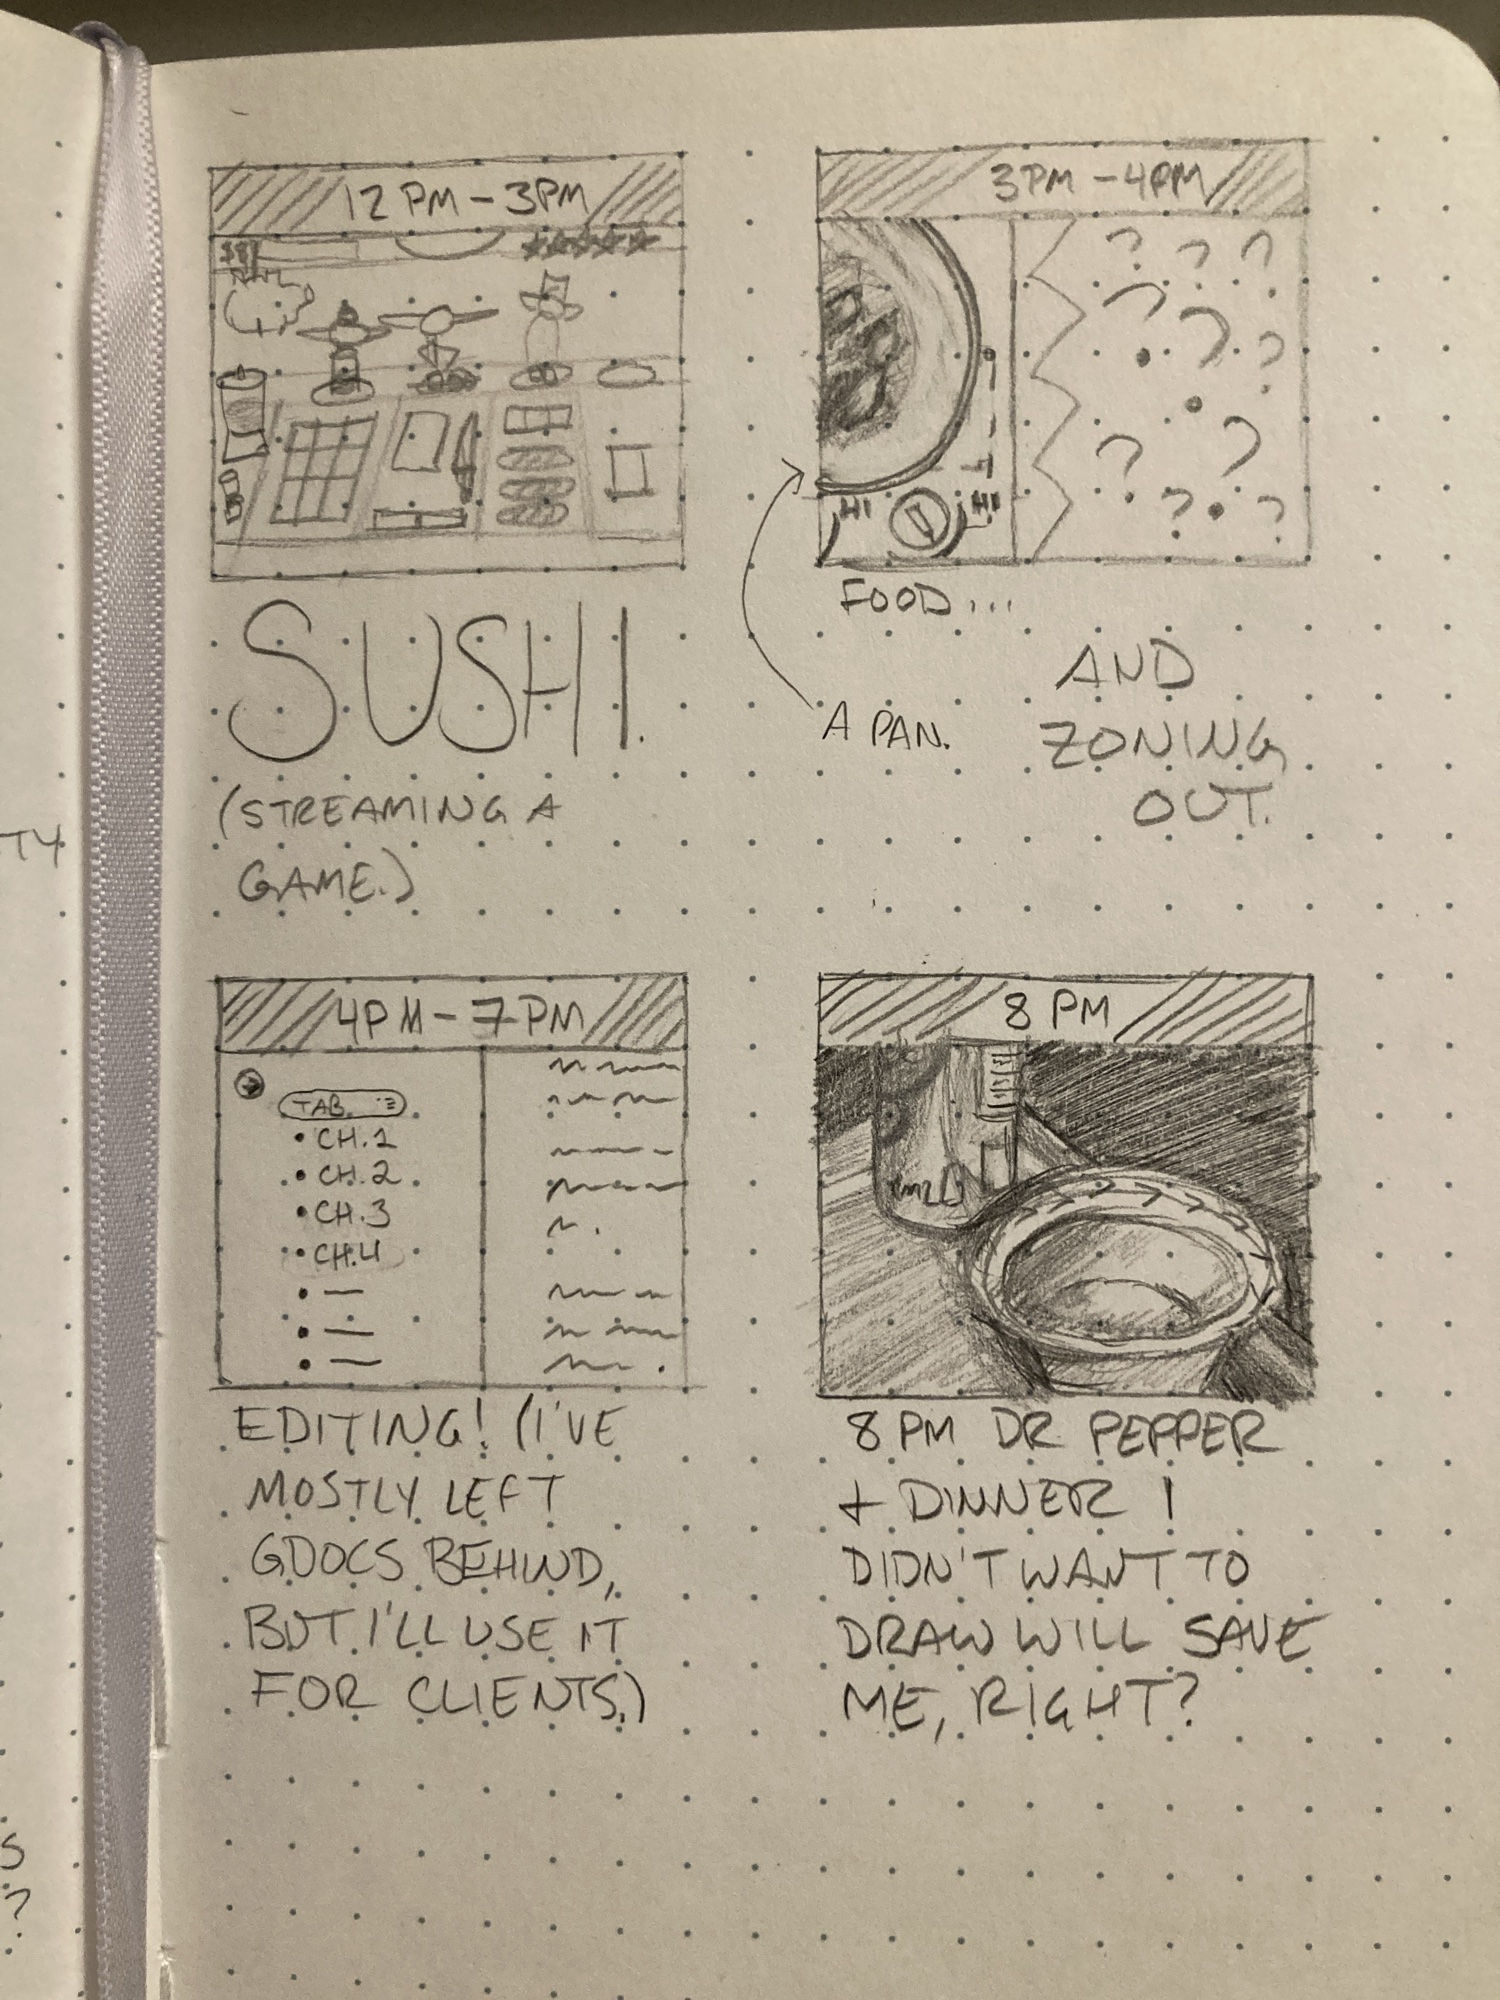 12 PM - 3PM
SUSHI.
(STREAMING A
GAME.)
3PM - 4PM
HI
HI
FOOD...
A PAN.
AND
ZONING
OUT.
4PM - 7PM
TAB
• CH.1
• CH.2
• CH.3
• CH.4
EDITING! (I'VE
MOSTLY LEFT
GDOCS BEHIND,
BUT I'LL USE IT
FOR CLIENTS.)
8 PM
8 PM DR PEPPER
+ DINNER I
DIDN'T WANT TO
DRAW WILL SAVE
ME, RIGHT?